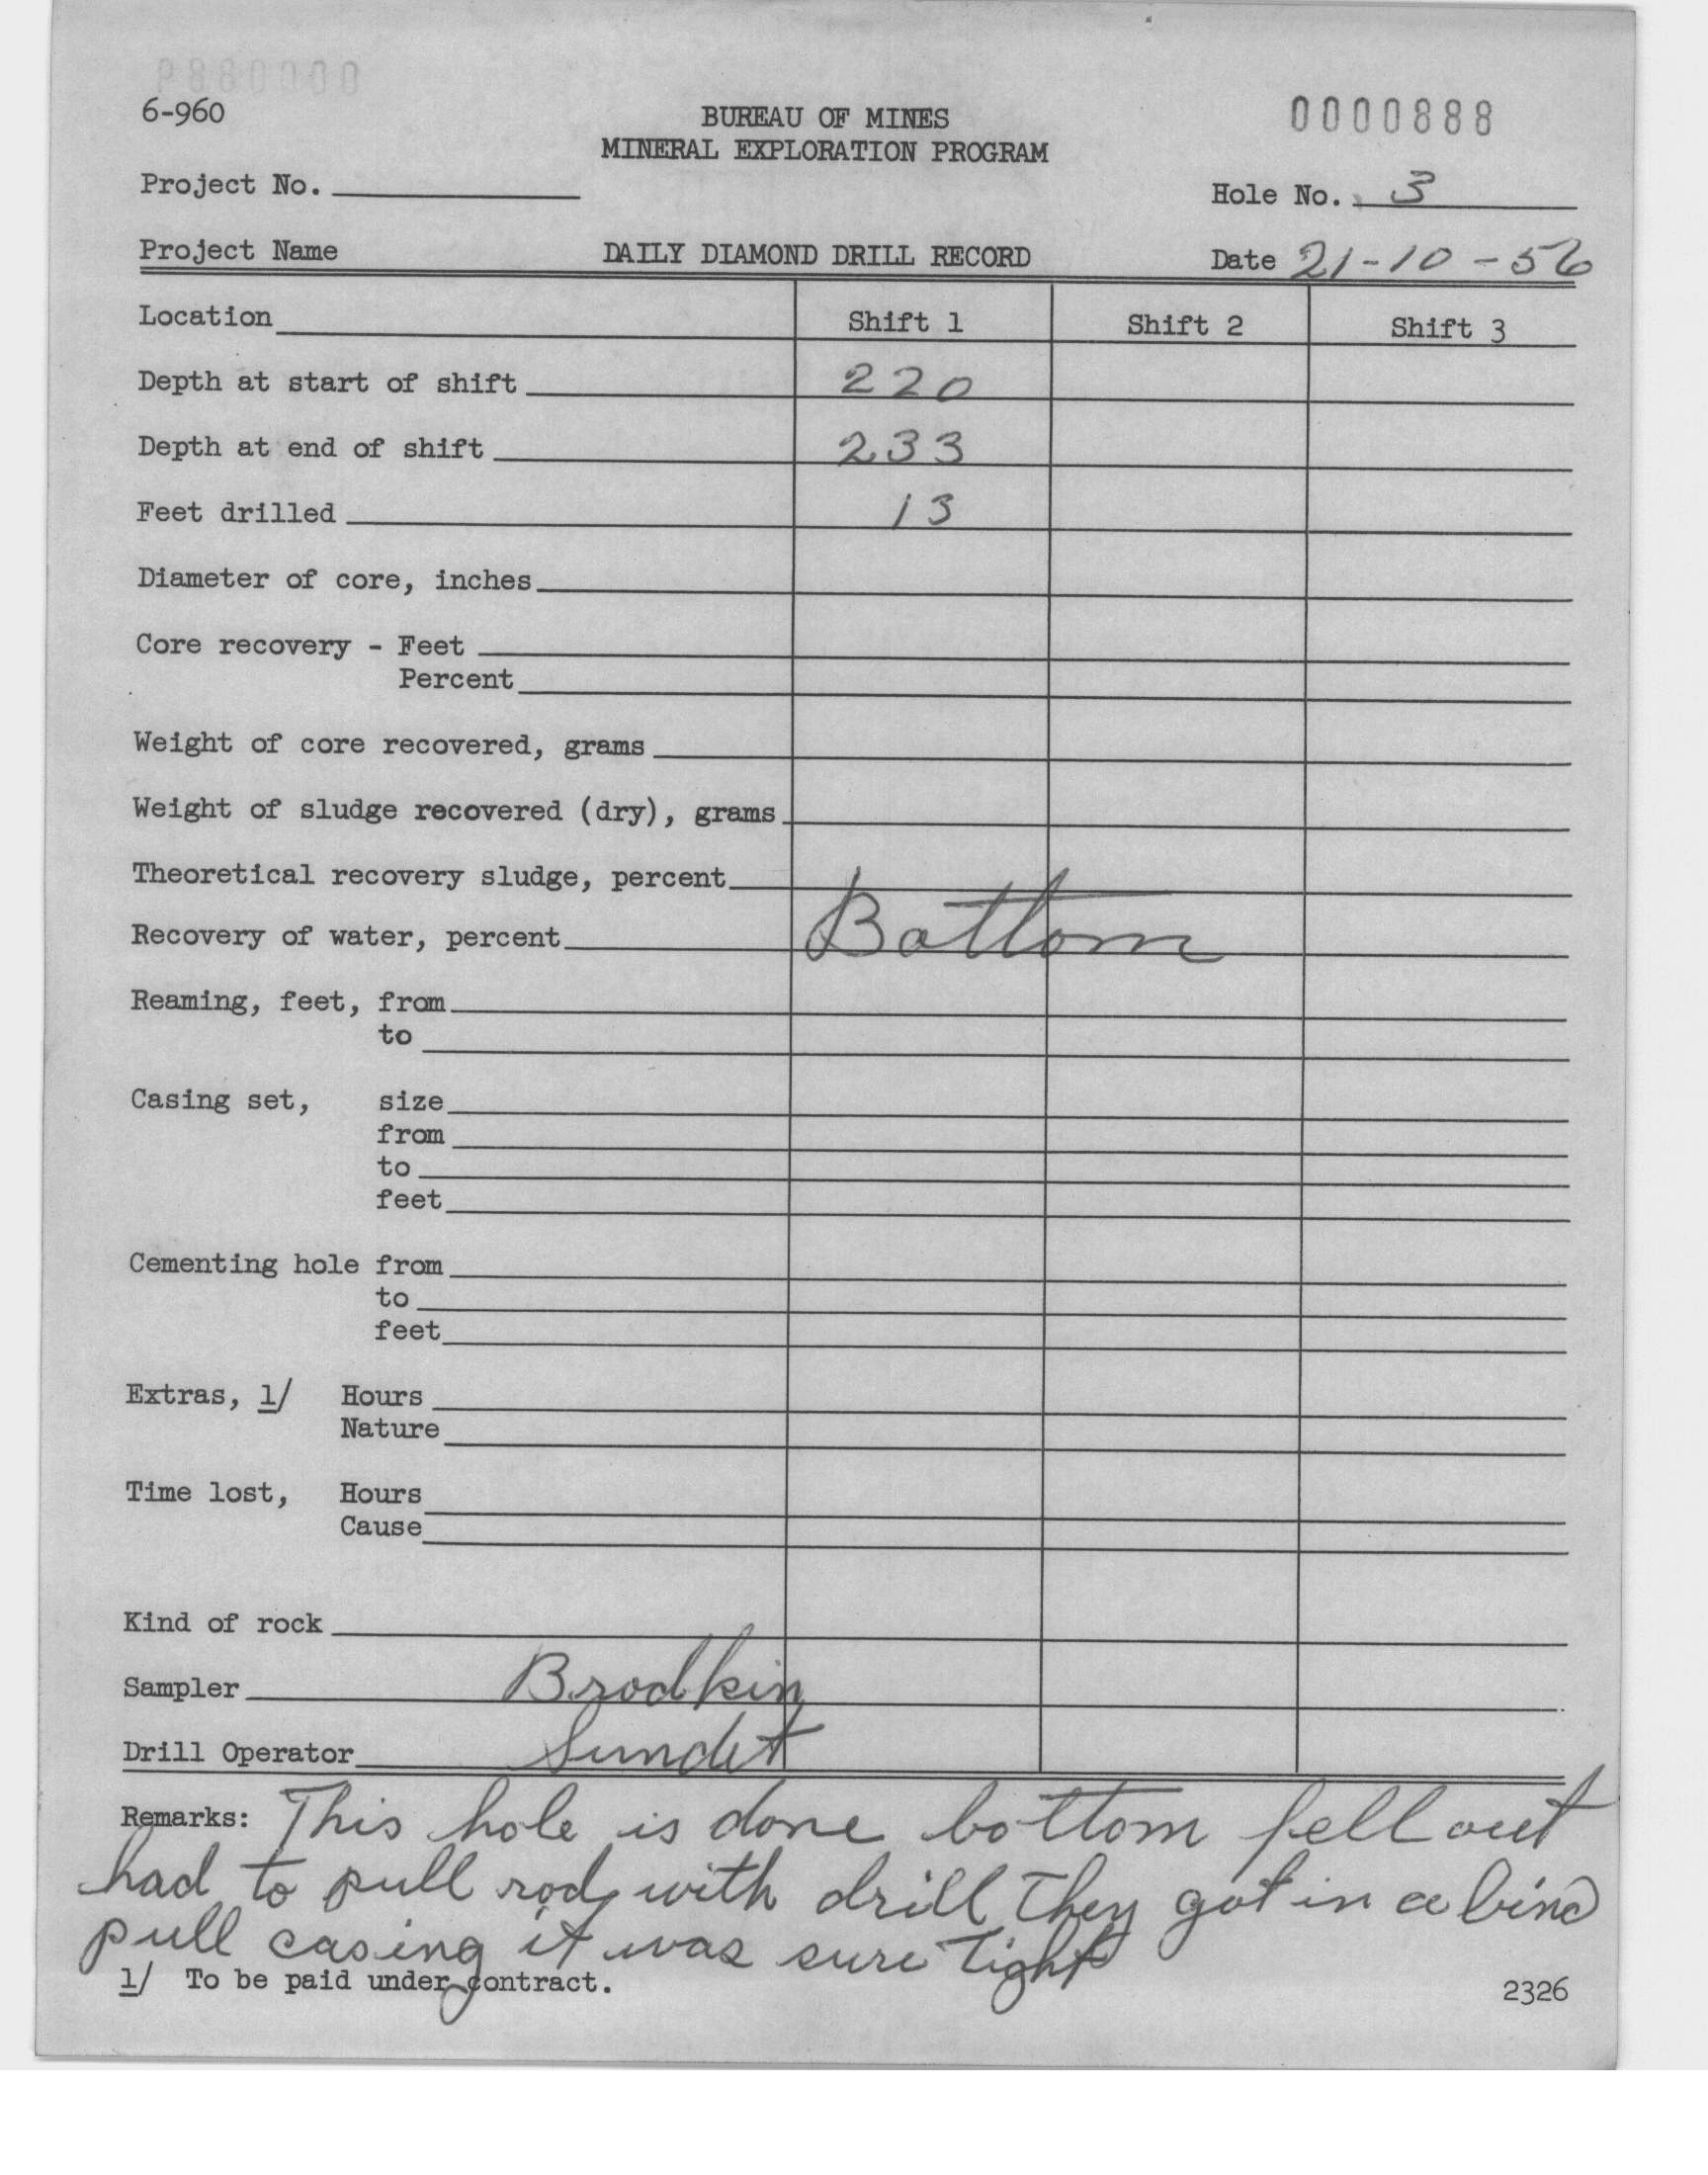 6-960
BUREAU OF MINES
0000888
MINERAL EXPLORATION PROGRAM
Project No.
Hole No. 3
Project Name DAILY DIAMOND DRILL RECORD Date 21-10-56
Location Shift 1 Shift 2 Shift 3
Depth at start of shift 220
Depth at end of shift 233
Feet drilled 13
Diameter of core, inches
Core recovery - Feet
Percent
Weight of core recovered, grams
Weight of sludge recovered (dry), grams
Theoretical recovery sludge, percent
Recovery of water, percent Bottom
Reaming, feet, from
to
Casing set, size
from
to
feet
Cementing hole from
to
feet
Extras, 1/ Hours
Nature
Time lost, Hours
Cause
Kind of rock
Sampler Brodkin
Drill Operator Sundet
Remarks: This hole is done bottom fell out
had to pull rods with drill they got in a bind
pull casing it was sure tight
1/ To be paid under contract.
2326